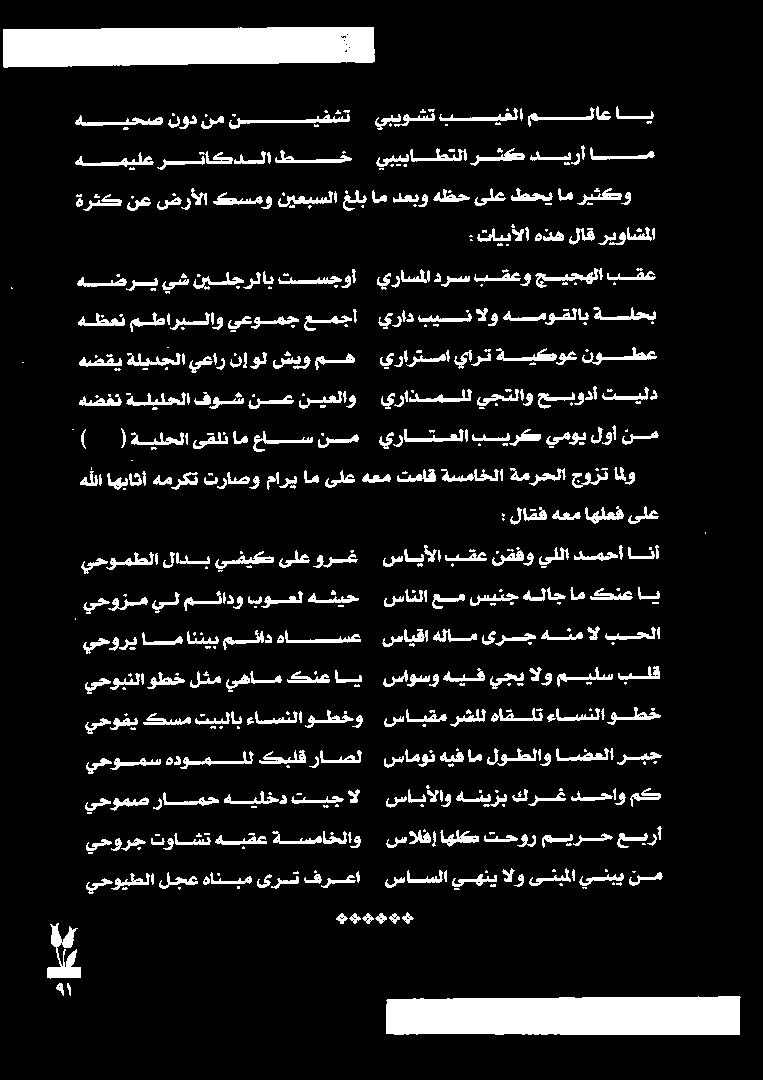 يا عالم الغيب تشويبي تشفين من دون صحيه
ما أريد كثر التطابيبي خط الدكاتر عليمه
وكثير ما يحط على حظه وبعد ما بلغ السبعين ومسك الأرض عن كثرة
المشاوير قال هذه الأبيات :
عقب الهجيج وعقب سرد المساري أوجست بالرجلين شي يرضه
بحلة بالقومه ولا نيب داري أجمع جموعي والبراطم نعظه
عطون عوكية تراي امتراري هم ويش لو إن راعي الجديلة يقضه
دليت أدوبح والتجي للمذاري والعين عن شوف الحليلة نغضه
من أول يومي كريب العتاري من ساع ما نلقى الحلية ( )
ولما تزوج الحرمة الخامسة قامت معه على ما يرام وصارت تكرمه أثابها الله
على فعلها معه فقال :
أنا أحمد اللي وفقن عقب الأياس غرو على كيفي بدال الطموحي
يا عنك ما جاله جنيس مع الناس حيشه لعوب ودائم لي مزوحي
الحب لا منه جرى ماله اقياس عساه دائم بيننا ما يروحي
قلب سليم ولا يجي فيه وسواس يا عنك ماهي مثل خطو النبوحي
خطو النساء تلقاه للشر مقباس وخطو النساء بالبيت مسك يفوحي
جبر العضا والطول ما فيه نوماس لصار قلبك للموده سموحي
كم واحد غرك بزينه والأباس لا جيت دخليه حمار صموحي
أربع حريم روحت كلها إفلاس والخامسة عقبه تشاوت جروحي
من يبني المبنى ولا ينهي الساس اعرف ترى مبناه عجل الطيوحي
٩١